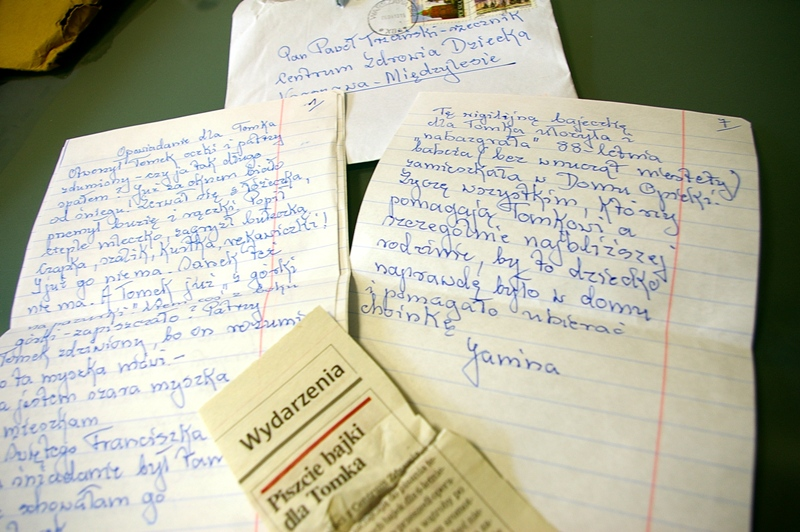 Pan Paweł Trzciński-rzecznik
Centrum Zdrowia Dziecka
Warszawa-Międzylesie
1/
Opowiadanie dla Tomka
Otworzył Tomek oczki i patrzy
zdumiony - czy ja tak długo
spałem? już za oknem biało
od śniegu. Zerwał się z łóżeczka,
przemył buzię i rączki, łopił
ciepłe mleczko, zagryzł bułeczką
czapka, szalik, kurtka, rękawiczki!
I już go nie ma. Sanek też
nie ma. A Tomek już z górki
górki - zapiszczało. Patrzy
Tomek zdziwiony, bo on rozumie
co ta myszka mówi -
a jestem szara myszka
mieszkam
Świętego Franciszka
śniadanie był tam
schowałam go
7/
Tę wigilijną bajeczkę
dla Tomka ułożyła i
"nabazgrała" 88 letnia
babcia (bez wnucząt niestety)
zamieszkała w Domu Opieki.
Życzę wszystkim, którzy
pomagają Tomkowi a
szczególnie najbliższej
rodzinie, by to dziecko
naprawdę było w domu
i pomagało ubierać
choinkę
Janina
Wydarzenia
Piszcie bajki
dla Tomka